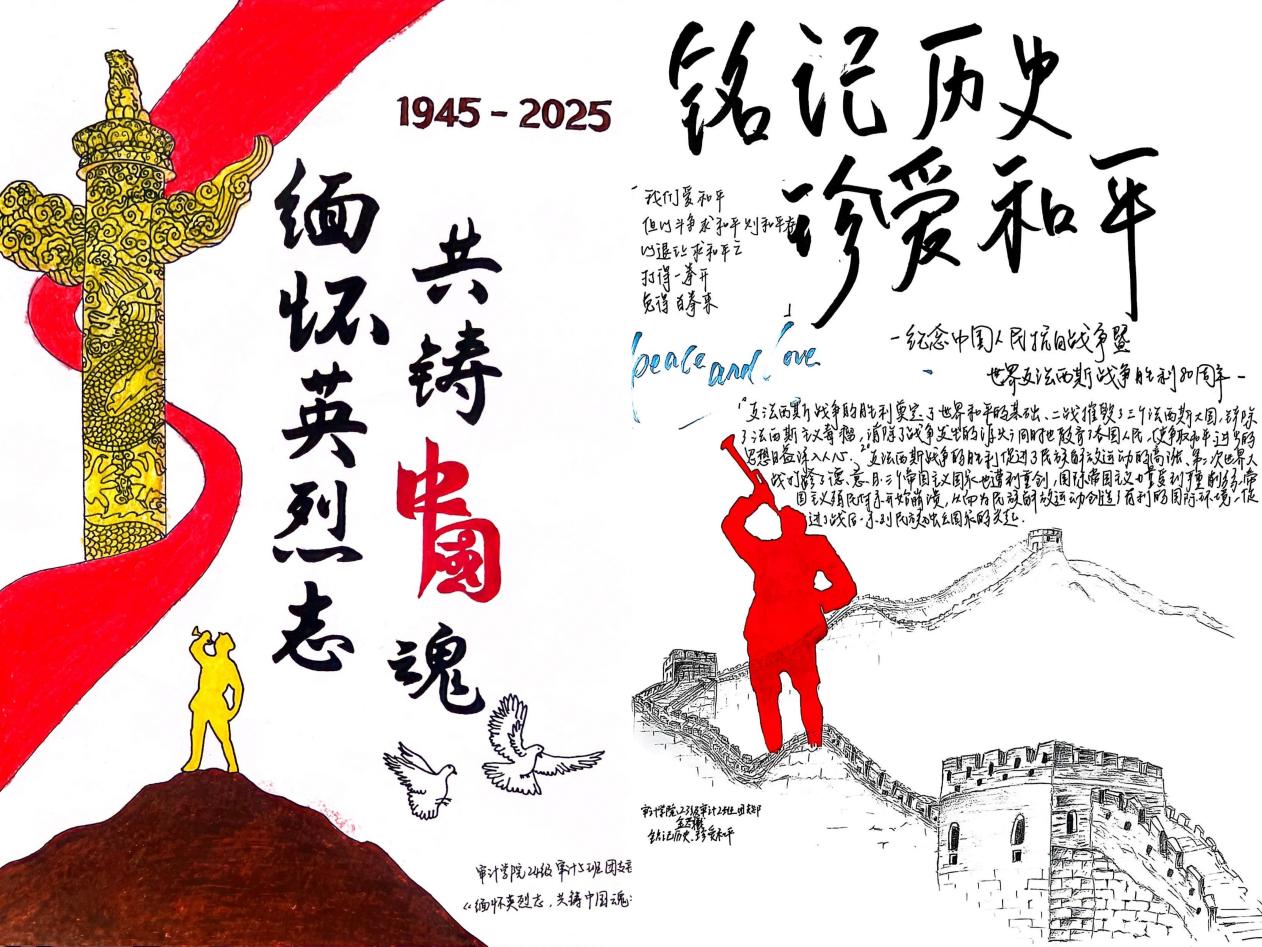 1945-2025
缅怀英烈志
共铸中國魂
审计学院24级审计5班团支
《缅怀英烈志，共铸中国魂
铭记历史
珍爱和平
我们爱和平
但以斗争求和平则和平存
以退让求和平亡
打得一拳开
免得百拳来
peace and love
-纪念中国人民抗日战争暨
世界反法西斯战争胜利80周年-
1°反法西斯战争的胜利奠定了世界和平的基础、二战摧毁了三个法西斯大国，铲除
了法西斯主义毒瘤，消除了战争发出的
同时也教育了各国人民，使争取和平进步的
思想日益深入人心。2°反法西斯战争的胜利促进了民族解放运动的高涨、第二次世界大
战打垮了德、意、日三个帝国主义国家也遭到重创，国际帝国主义力量受到
削弱，帝
国主义殖民体系开始崩溃，从而为民族解放运动创造了有利的国际环境，促
进了战后一系列民族独立国家的兴起.
审计学院23级审计2班团支部
铭记历史、珍爱和平